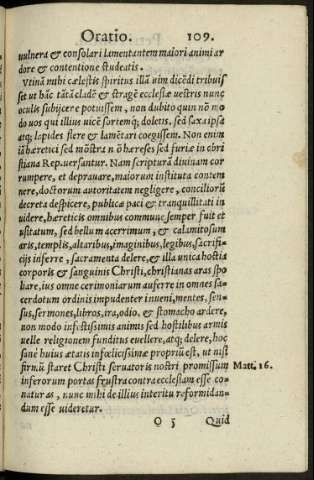 Oratio. 109.
vulnera & consolari lamentantem maiori animi ar
dore & contentione studeatis.
Vtinã mihi cælestis spiritus illã uim dicẽdi tribuis
set ut hãc tãtã cladẽ & stragẽ ecclesiæ uestris nunc
oculis subijcere potuissem, non dubito quin nõ mo
do uos qui illius uicẽ sortemq; doletis, sed saxa ipsa
atq; lapides flere & lamẽtari coegissem. Non enim
iã hæretici sed mõstra nõ hæreses sed furiæ in chri
stiana Rep. uersantur. Nam scripturã diuinam cor
rumpere, et deprauare, maiorum instituta contem
nere, doctorum autoritatem negligere, conciliorũ
decreta despicere, publicæ paci & tranquillitati in
uidere, hæreticis omnibus commune semper fuit et
usitatum, sed bellum acerrimum, & calamitosum
aris, templis, altaribus, imaginibus, legibus, sacrifi-
cijs inferre, sacramenta delere, & illa unica hostia
corporis & sanguinis Christi, christianas aras spo
liare, ius omne cerimoniarum auferre in omnes sa-
cerdotum ordinis impudenter inueni, mentes, sen-
sus, sermones, libros, ira, odio, & stomacho ardere,
non modo infectisimis animis sed hostilibus armis
uelle religionem funditus euellere, atq; delere, hoc
sanè huius ætatis infœlicissimæ propriũ est, ut nisi
firmũ staret Christi seruatoris nostri promissum
Matt. 16.
inferorum portas frustra contra ecclesiam esse co-
naturas, nunc mihi de illius interitu reformidan-
dum esse uideretur.
O 5 Quid